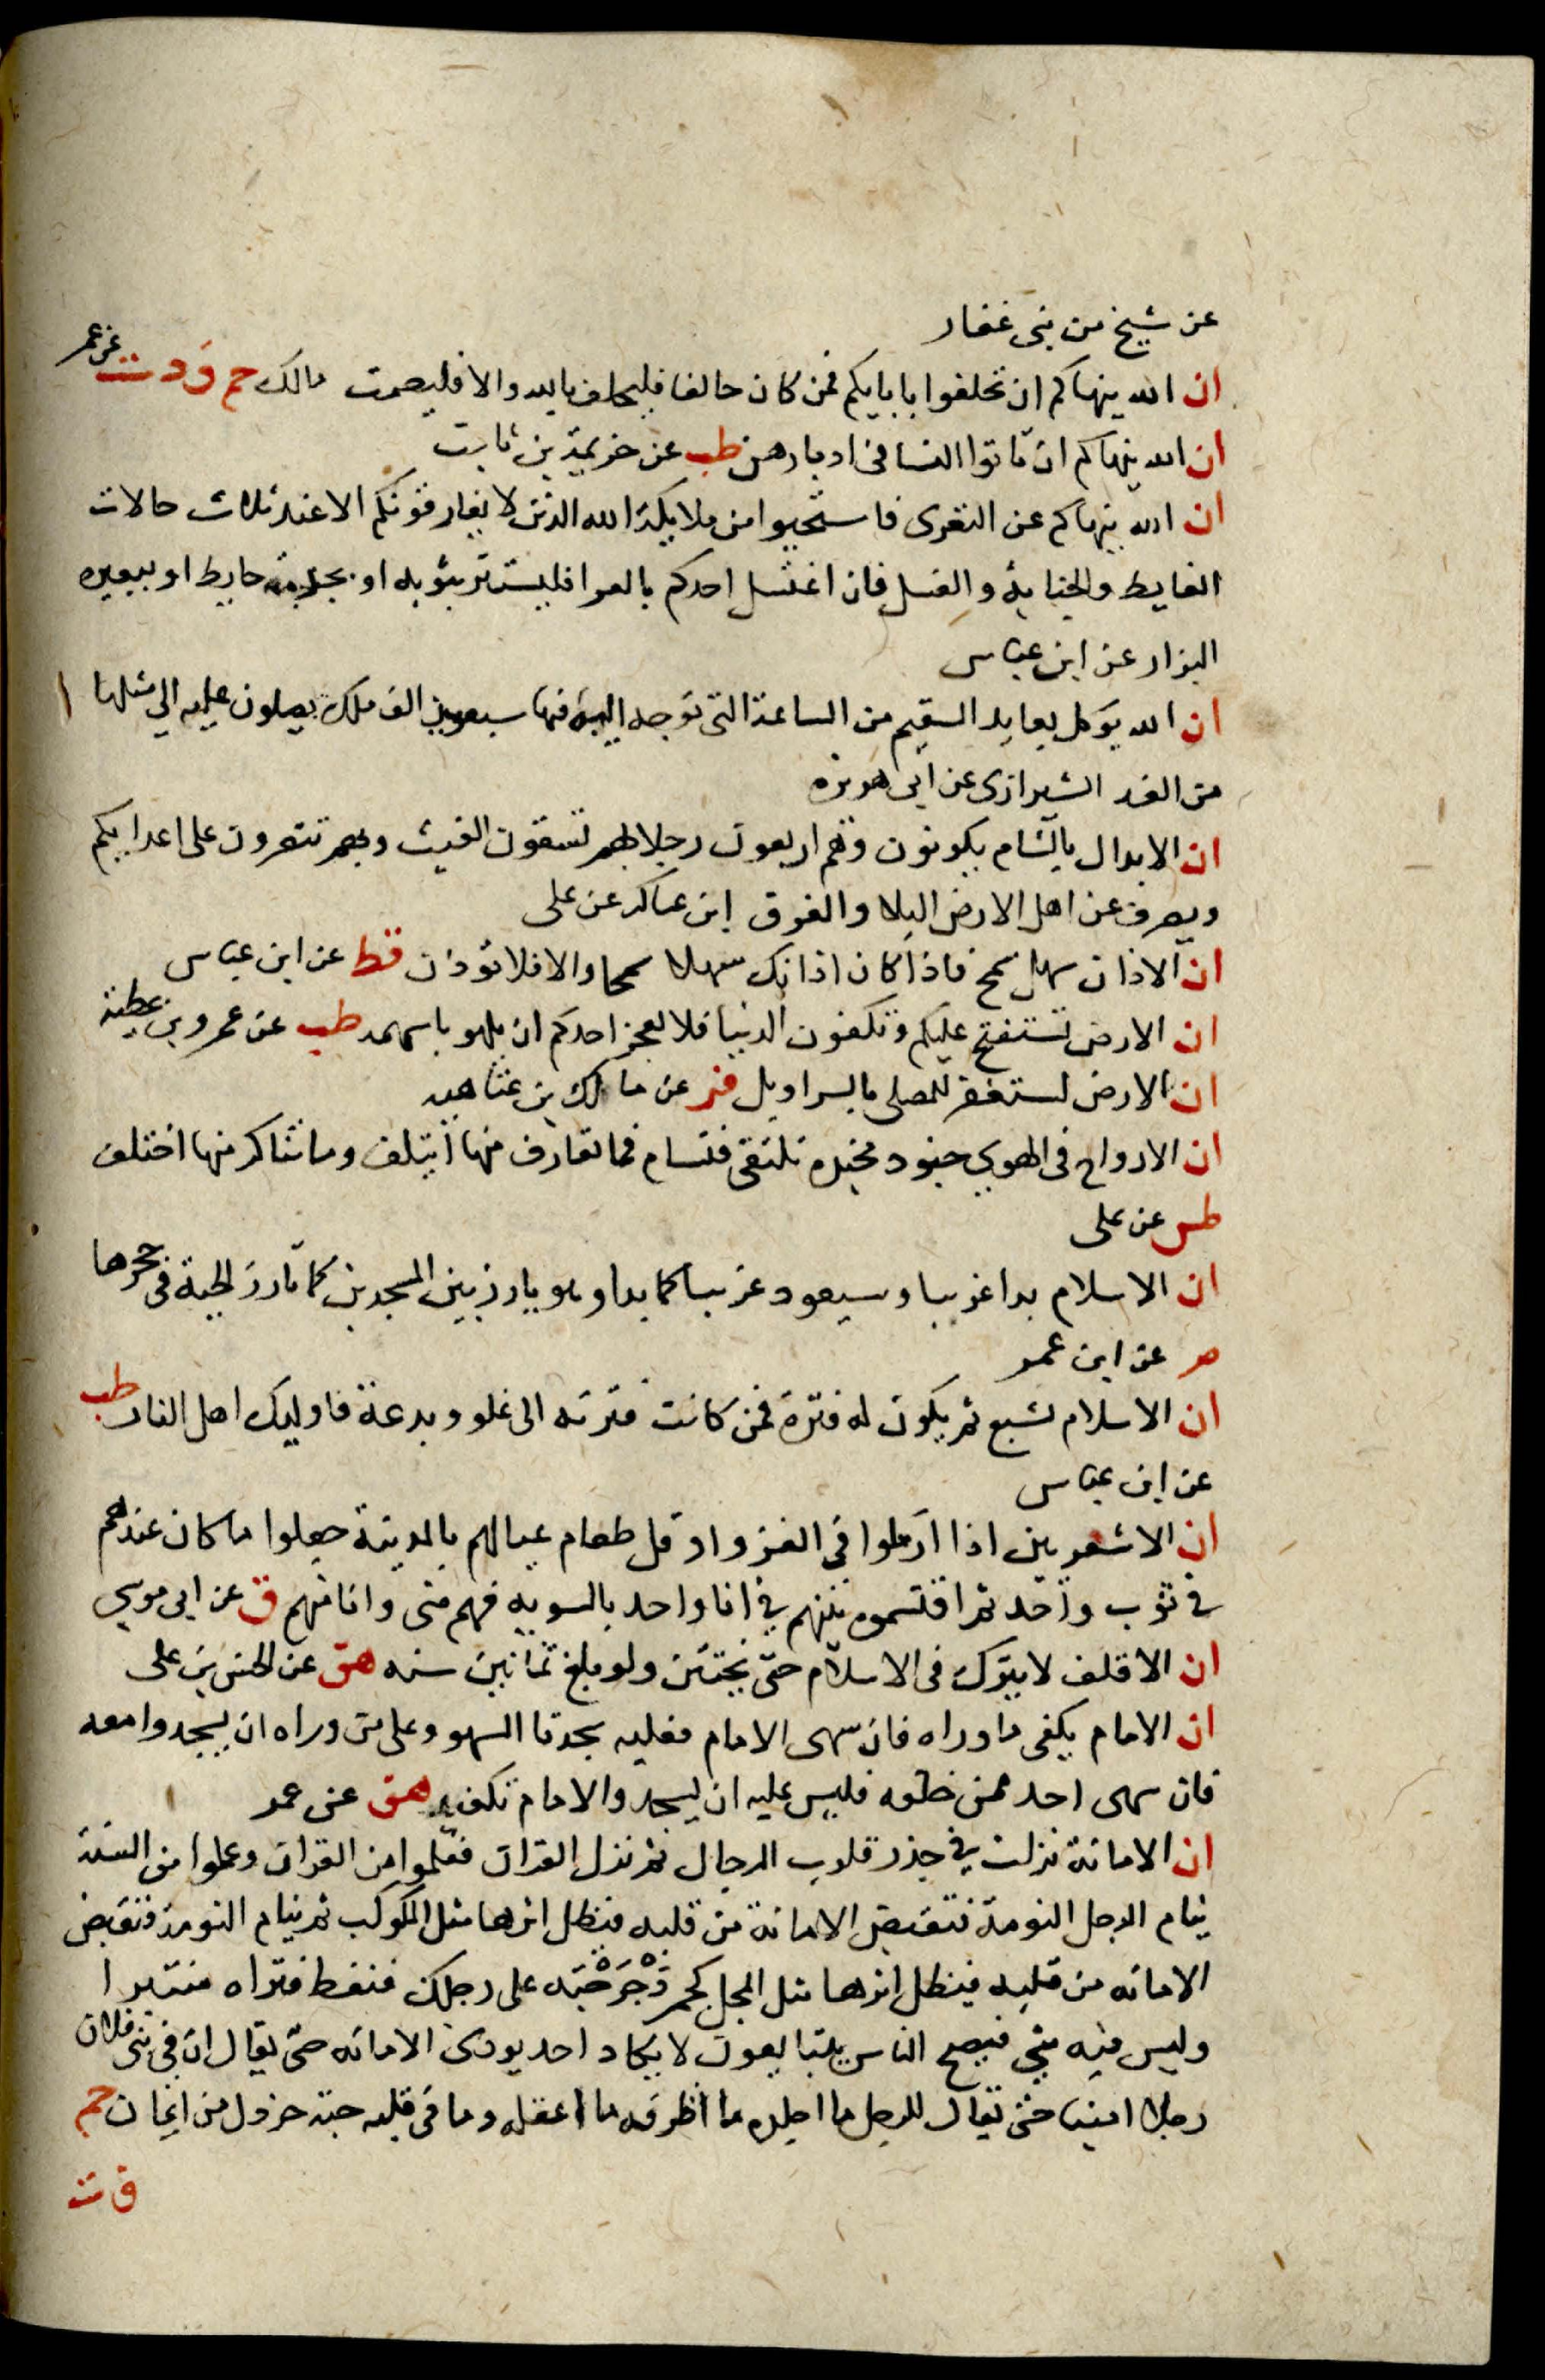 عن شيخ من بنى غفار
ان الله ينهاكم ان تحلفوا بابايكم فمن كان حالفا فليحلف بالله والا فليصمت مالك حم ق د ت عن عمر
ان الله ينهاكم ان تاتوا النسا فى ادبارهن طب عن خزيمة بن ثابت
ان الله ينهاكم عن التعرى فاستحيوا من ملايكة الله الذين لا يفارقونكم الا عند ثلاث حالات
الغايط والجنابة والغسل فان اغتسل احدكم بالعرا فليستتر بثوبه او بجذمة حايط او ببعيره
البزار عن ابن عباس
ان الله يوكل بعايد السقيم من الساعة التى توجه اليه فيها سبعين الف ملك يصلون عليه الى مثلها
من الغد الشيرازى عن ابى هريره
ان الابدال بالشام يكونون وهم اربعون رجلا بهم تسقون الغيث وبهم تنصرون على اعدايكم
ويصرف عن اهل الارض البلا والغرق ابن عساكر عن على
ان الاذان سهل سمح فاذا كان اذانك سهلا سمحا والا فلا تؤذن قط عن ابن عباس
ان الارض تستفتح عليكم وتكفون الدنيا فلا يعجز احدكم ان يلهو باسهمه طب عن عمرو بن عطية
ان الارض لستغفر للمصلى بالسراويل فر عن مالك بن عتاهيه
ان الارواح فى الهوى جنود مجنده تلتقى فتسام فما تعارف منها ايتلف وما تناكر منها اختلف
طس عن على
ان الاسلام بدا غريبا وسيعود غريبا كما بدا وهو يارز بين المسجدين كما تارز الحية فى جحرها
م عن ابن عمر
ان الاسلام يشبع ثم يكون له فترة فمن كانت فترته الى غلو وبدعة فاوليك اهل النار طب
عن ابن عباس
ان الاشعريين اذا ارملوا فى الغزو او قل طعام عيالهم بالمدينة جعلوا ما كان عندهم
فى ثوب واحد ثم اقتسموه بينهم فى انا واحد بالسويه فهم منى وانا منهم ق عن ابى موسى
ان الاقلف لا يترك فى الاسلام حتى يختتن ولو بلغ ثمانين سنه هق عن الحسن بن على
ان الامام يكفى ما وراه فان سهى الامام فعليه سجدتا السهو وعلى من وراه ان يسجدوا معه
فان سهى احد ممن خلفه فليس عليه ان يسجد والامام يكفيه هق عن عمر
ان الامانة نزلت فى جذر قلوب الرجال ثم نزل القران فعلموا من القران وعلموا من السنة
ينام الرجل النومة فتقبض الامانة من قلبه فيظل اثرها مثل الوكب ثم ينام النومة فتقبض
الامانه من قلبه فيظل اثرها مثل المجل كجمر دَحْرَجْتَه على رجلك فنفط فتراه منتبرا
وليس فيه شى فيصبح الناس يتبايعون لا يكاد احد يودى الامانه حتى يقال ان فى بنى فلان
رجلا امينا حتى يقال للرجل ما اجلده ما اظرفه ما اعقله وما فى قلبه حبة خردل من ايمان حم
ق ت